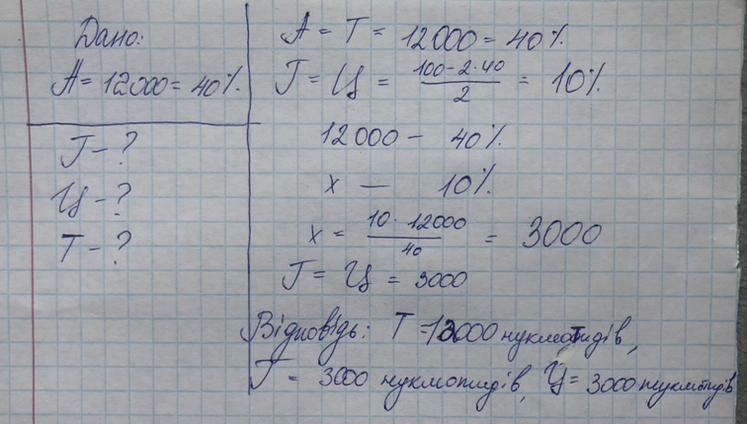 Дано:
А = 12000 = 40%.
Г - ?
Ц - ?
Т - ?
А = Т = 12000 = 40%.
Г = Ц = (100 - 2·40)/2 = 10%.
12000 - 40%.
х — 10%.
х = (10 · 12000)/40 = 3000
Г = Ц = 3000
Відповідь: Т = 12000 нуклеотидів,
Г = 3000 нуклеотидів, Ц = 3000 нуклеотидів